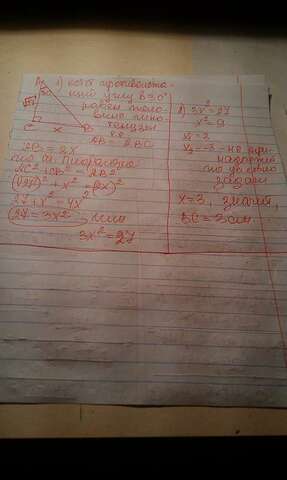 A
√27
30°
C
x
B
1) катет противолежа-
щий углу В 30°
равен поло-
вине гипо-
тенузы
т.е.
AB = 2BC
AB = 2x
по т. Пифагора
AC² + CB² = AB²
(√27)² + x² = (2x)²
27 + x² = 4x²
27 = 3x², или
3x² = 27
2) 3x² = 27
x² = 9
x₂ = -3 - не при-
надлежит
по условию
задачи
x = 3, значит,
BC = 3 см.